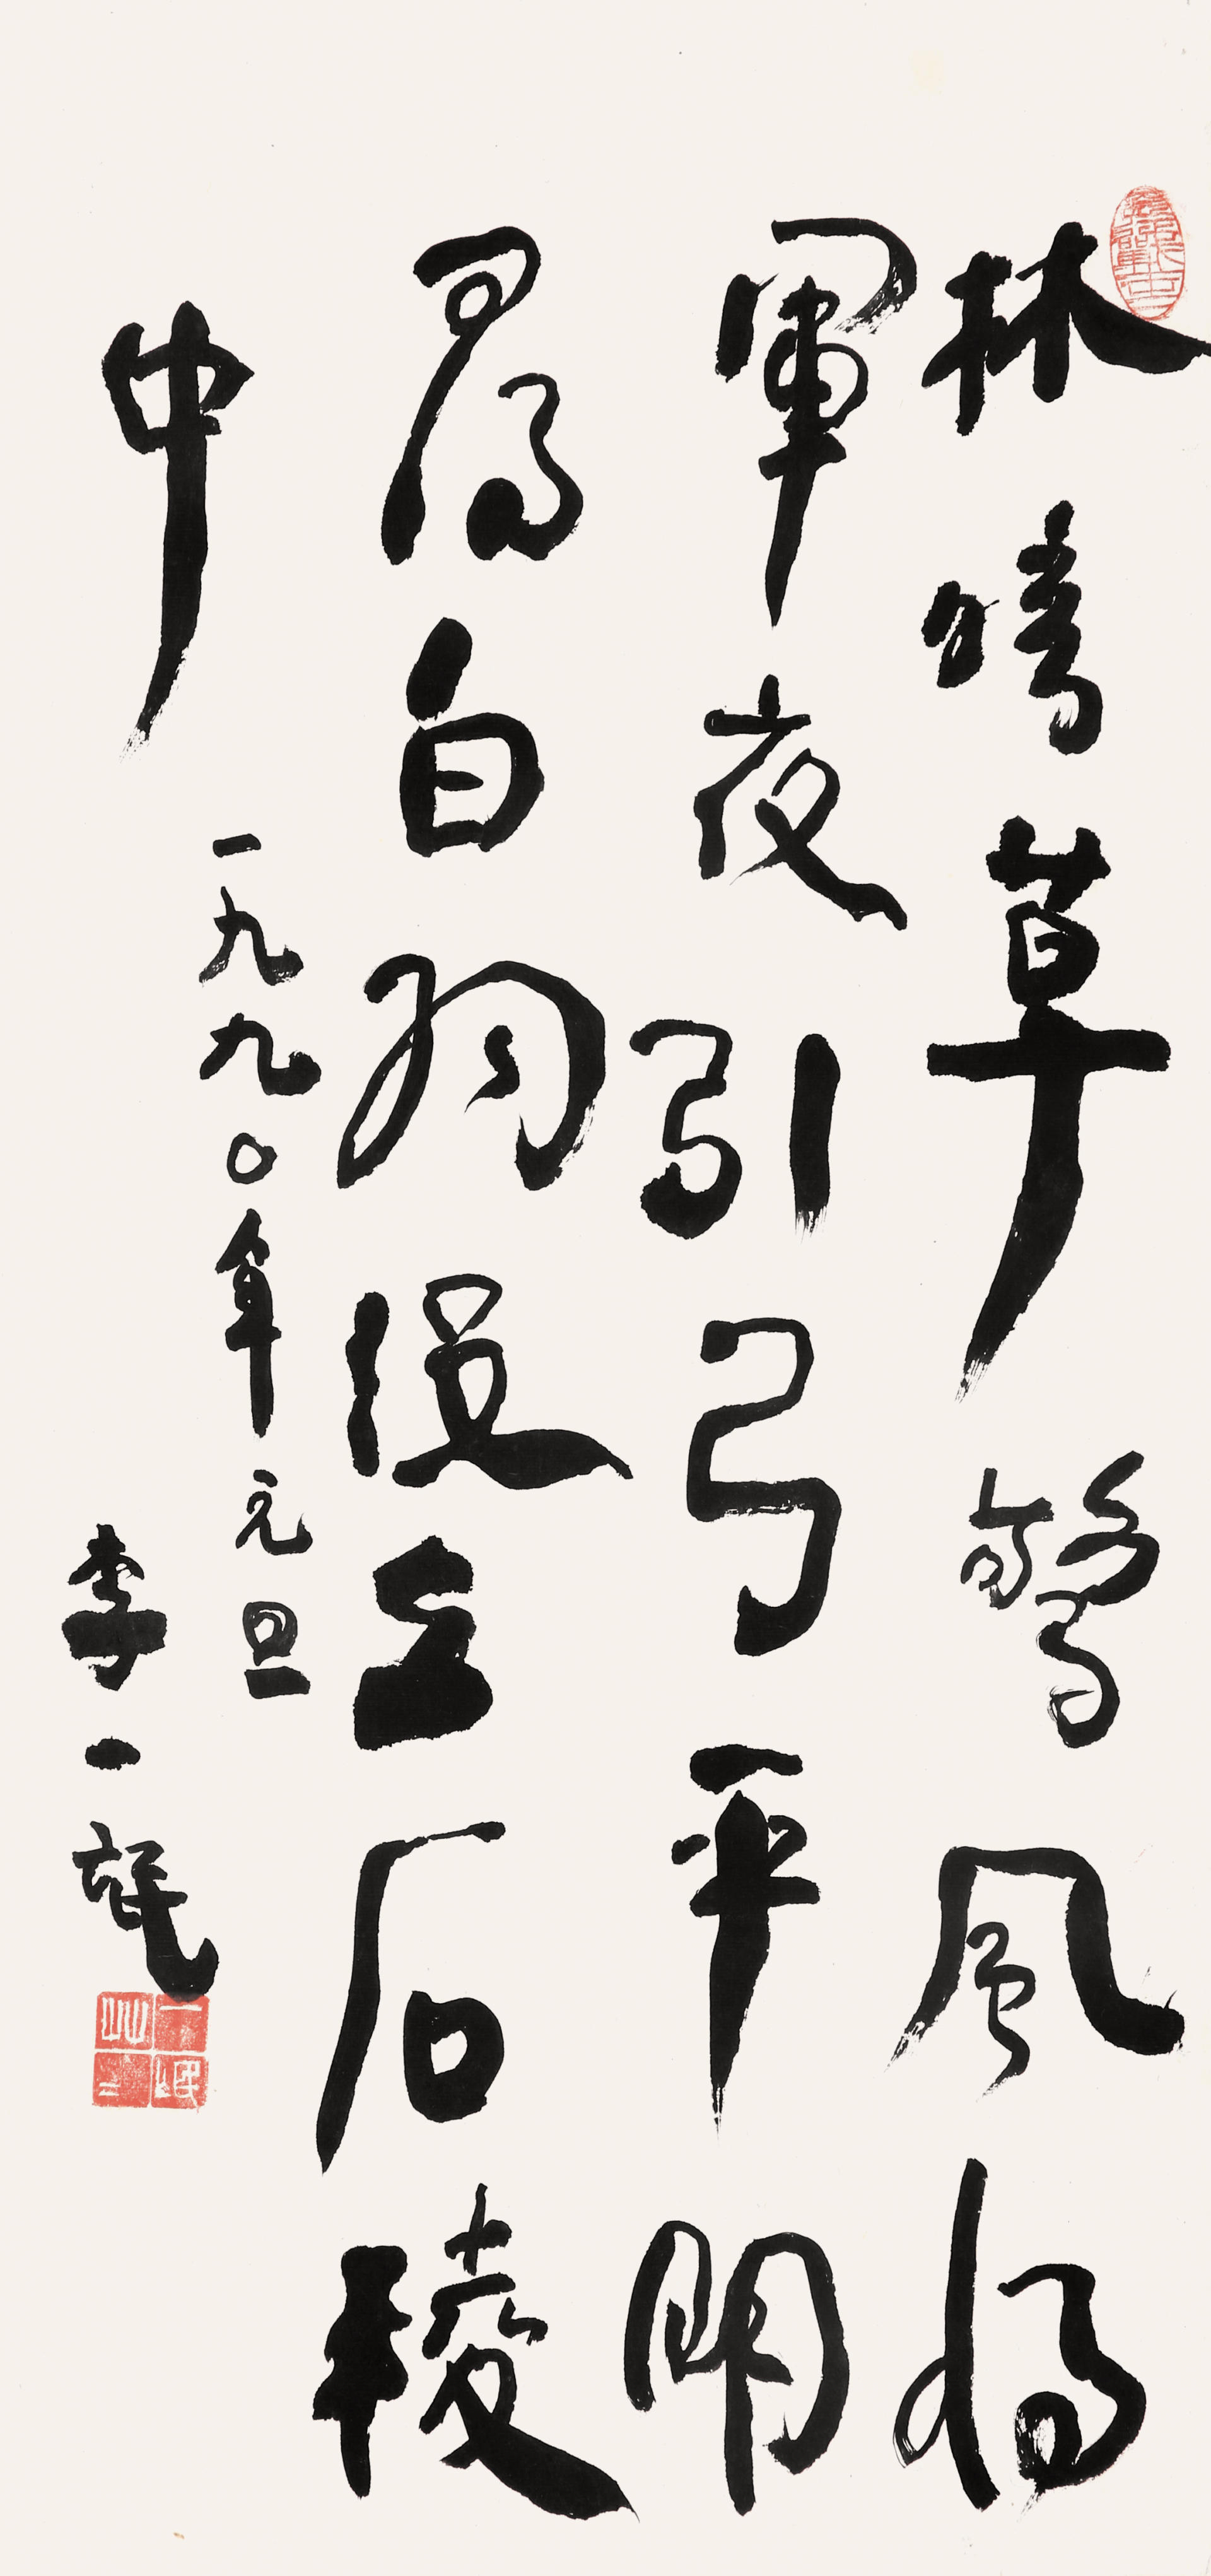 林暗草驚風將
軍夜引弓平明
尋白羽没在石稜
中
一九九〇年元旦
李一氓